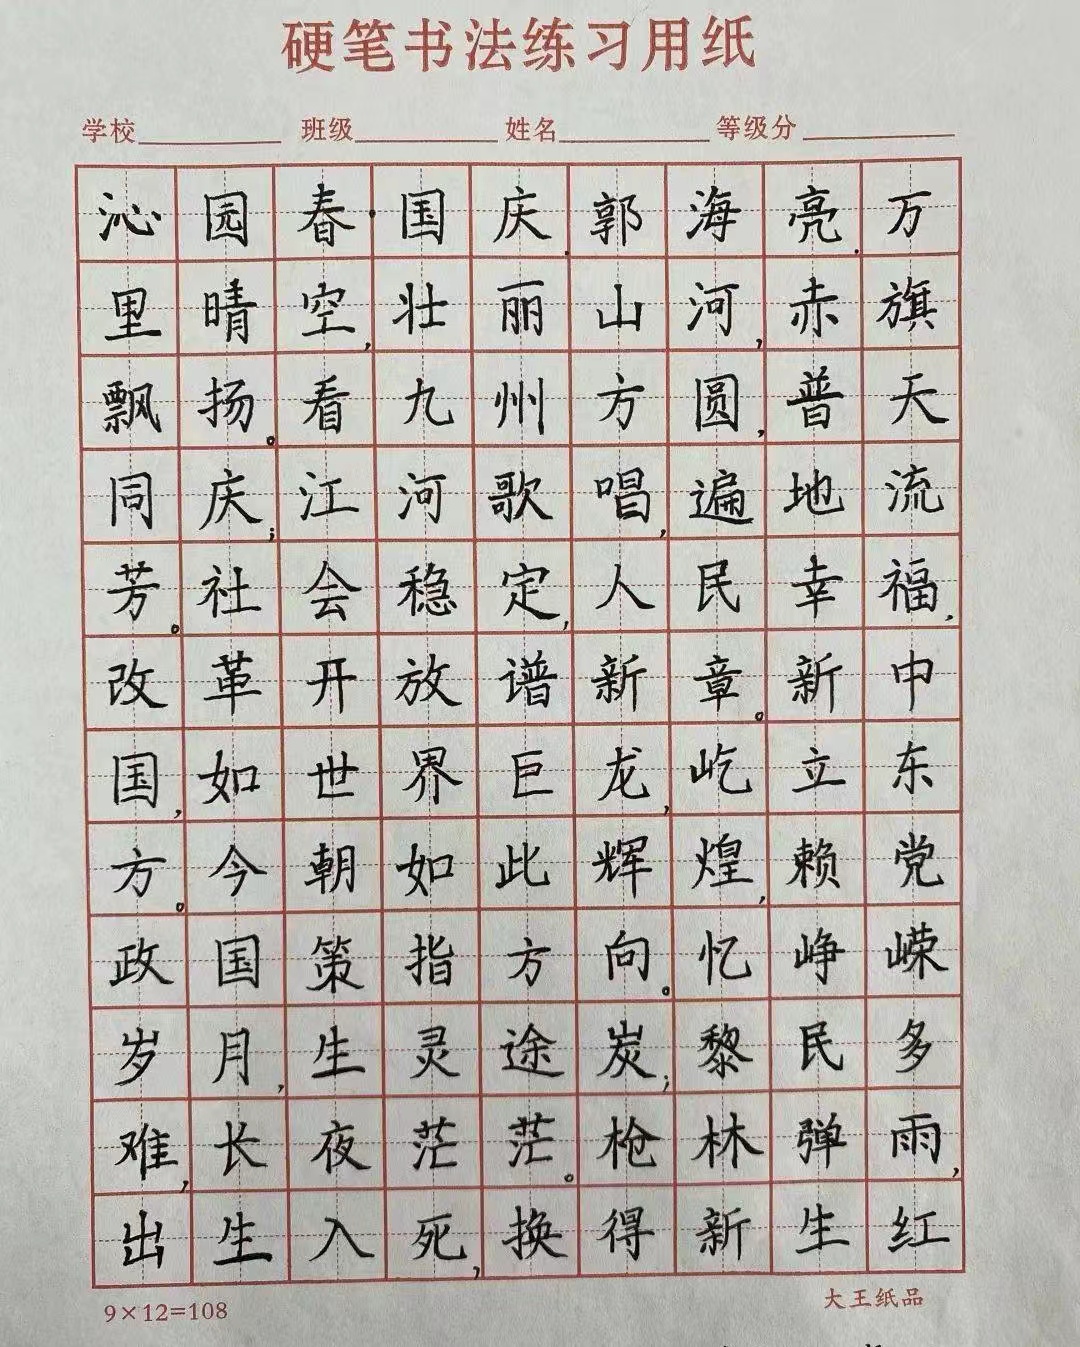 硬笔书法练习用纸
学校 班级 姓名 等级分
沁园春·国庆.郭海亮.万
里晴空,壮丽山河,赤旗
飘扬。看九州方圆,普天
同庆;江河歌唱,遍地流
芳。社会稳定,人民幸福,
改革开放谱新章。新中
国,如世界巨龙,屹立东
方。今朝如此辉煌,赖党
政国策指方向。忆峥嵘
岁月,生灵途炭;黎民多
难,长夜茫茫。枪林弹雨,
出生入死,换得新生红
9×12=108 大王纸品